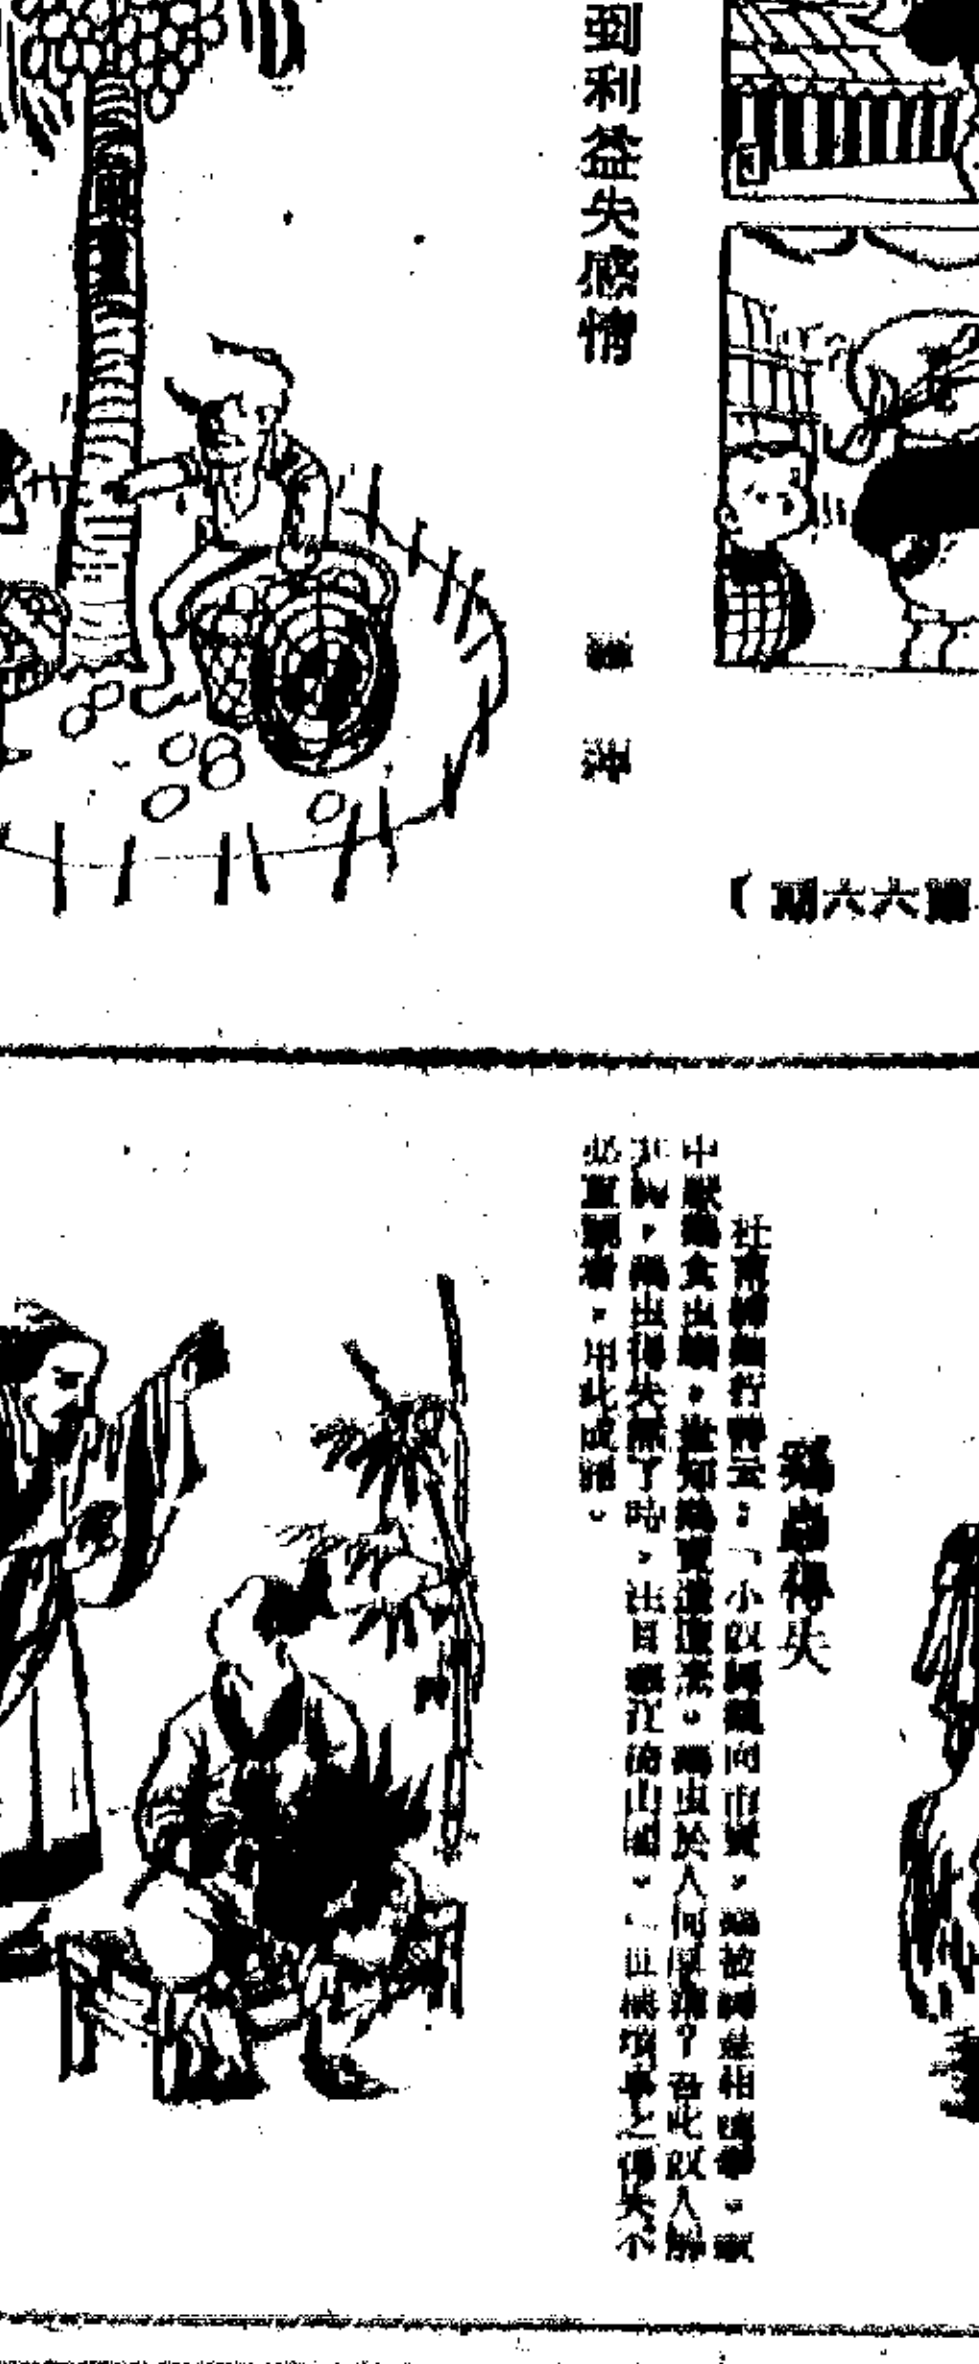 到利益失感情
第六六期
雞蟲得失
杜甫縛雞行詩云：「小奴縛雞向市賣，雞被縛急相喧爭。家
中厭雞食虫蟻，不知雞賣還遭烹。雞虫於人何厚薄？吾叱奴人解
其縛，雞虫得失無了時，注目寒江倚山閣。」世獘瑣事之得失不
必重視者，用此成語。